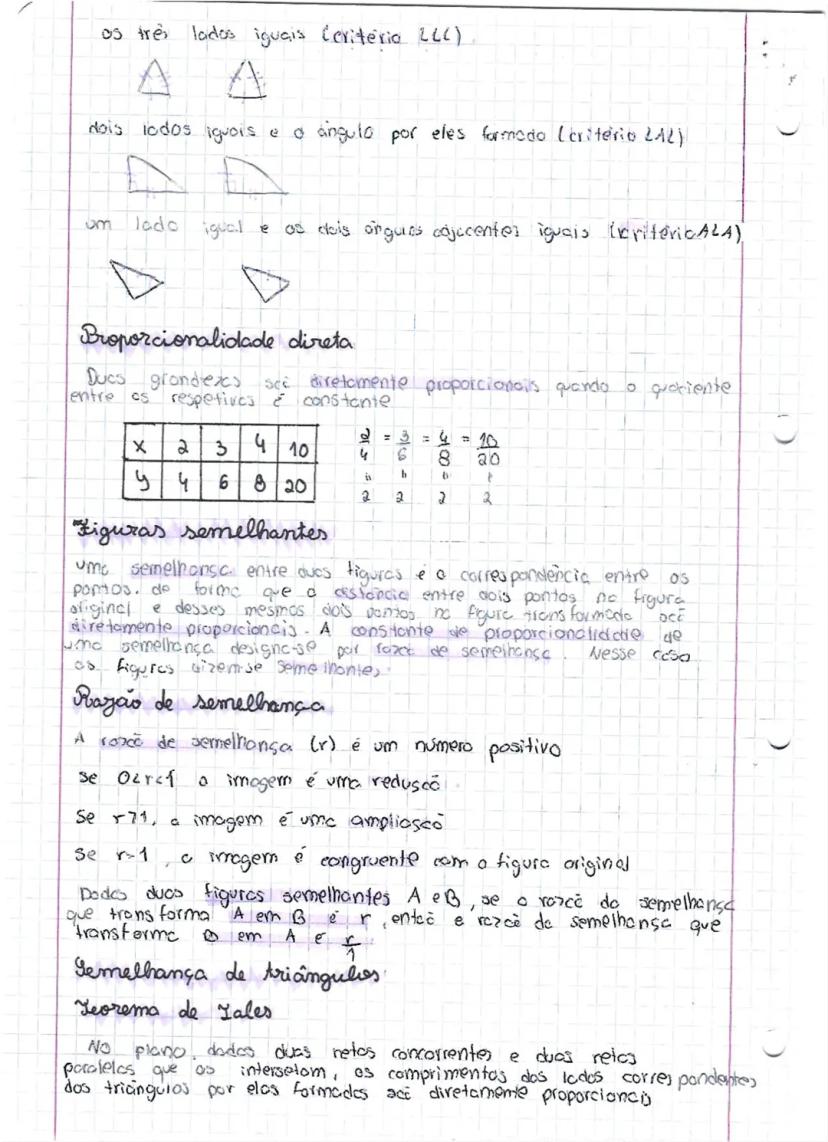 os três lados iguais (critério LLL)
dois lados iguais e o ângulo por eles formado (critério LAL)
um lado igual e os dois ângulos adjacentes iguais (critério ALA)
Proporcionalidade direta
Duas grandezas são diretamente proporcionais quando o quociente
entre as respetivas é constante
x 2 3 4 10
y 4 6 8 20
2/4 = 3/6 = 4/8 = 10/20
2 2 2 2
Figuras semelhantes
uma semelhança entre duas figuras é a correspondência entre os
pontos. de forma que a distância entre dois pontos na figura
original e desses mesmos dois pontos na figura transformada são
diretamente proporcionais. A constante de proporcionalidade de
uma semelhança designa-se por razão de semelhança. Nesse caso
as figuras dizem-se semelhantes
Razão de semelhança
A razão de semelhança (r) é um número positivo
se 0<r<1 a imagem é uma redusão
Se r>1, a imagem é uma ampliasão
Se r=1, a imagem é congruente com a figura original
Dadas duas figuras semelhantes A e B, se a razão da semelhança
que transforma A em B é r, então e razão da semelhança que
transforma B em A é r/1
Semelhança de triângulos
Teorema de Tales
No plano, dadas duas retas concorrentes e duas retas
paralelas que as intersetam, os comprimentos dos lados correspondentes
dos triângulos por elas formados são diretamente proporcionais